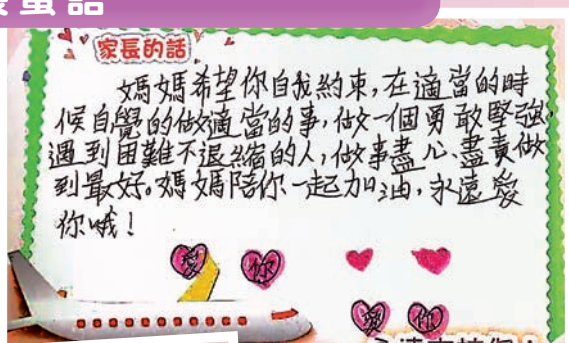 蜜語
家長的話
媽媽希望你自我約束,在適當的時
候自覺的做適當的事,做一個勇敢堅強,
遇到困難不退縮的人,做事盡心、盡責做
到最好。媽媽陪你一起加油,永遠愛
你哦!
愛 你
愛 你